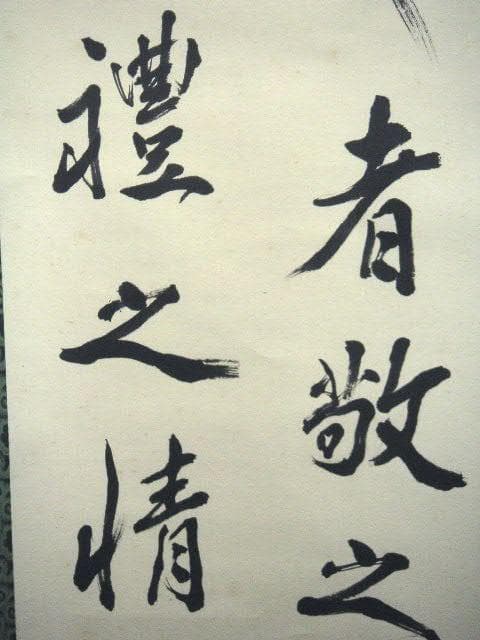 者敬之
禮之情